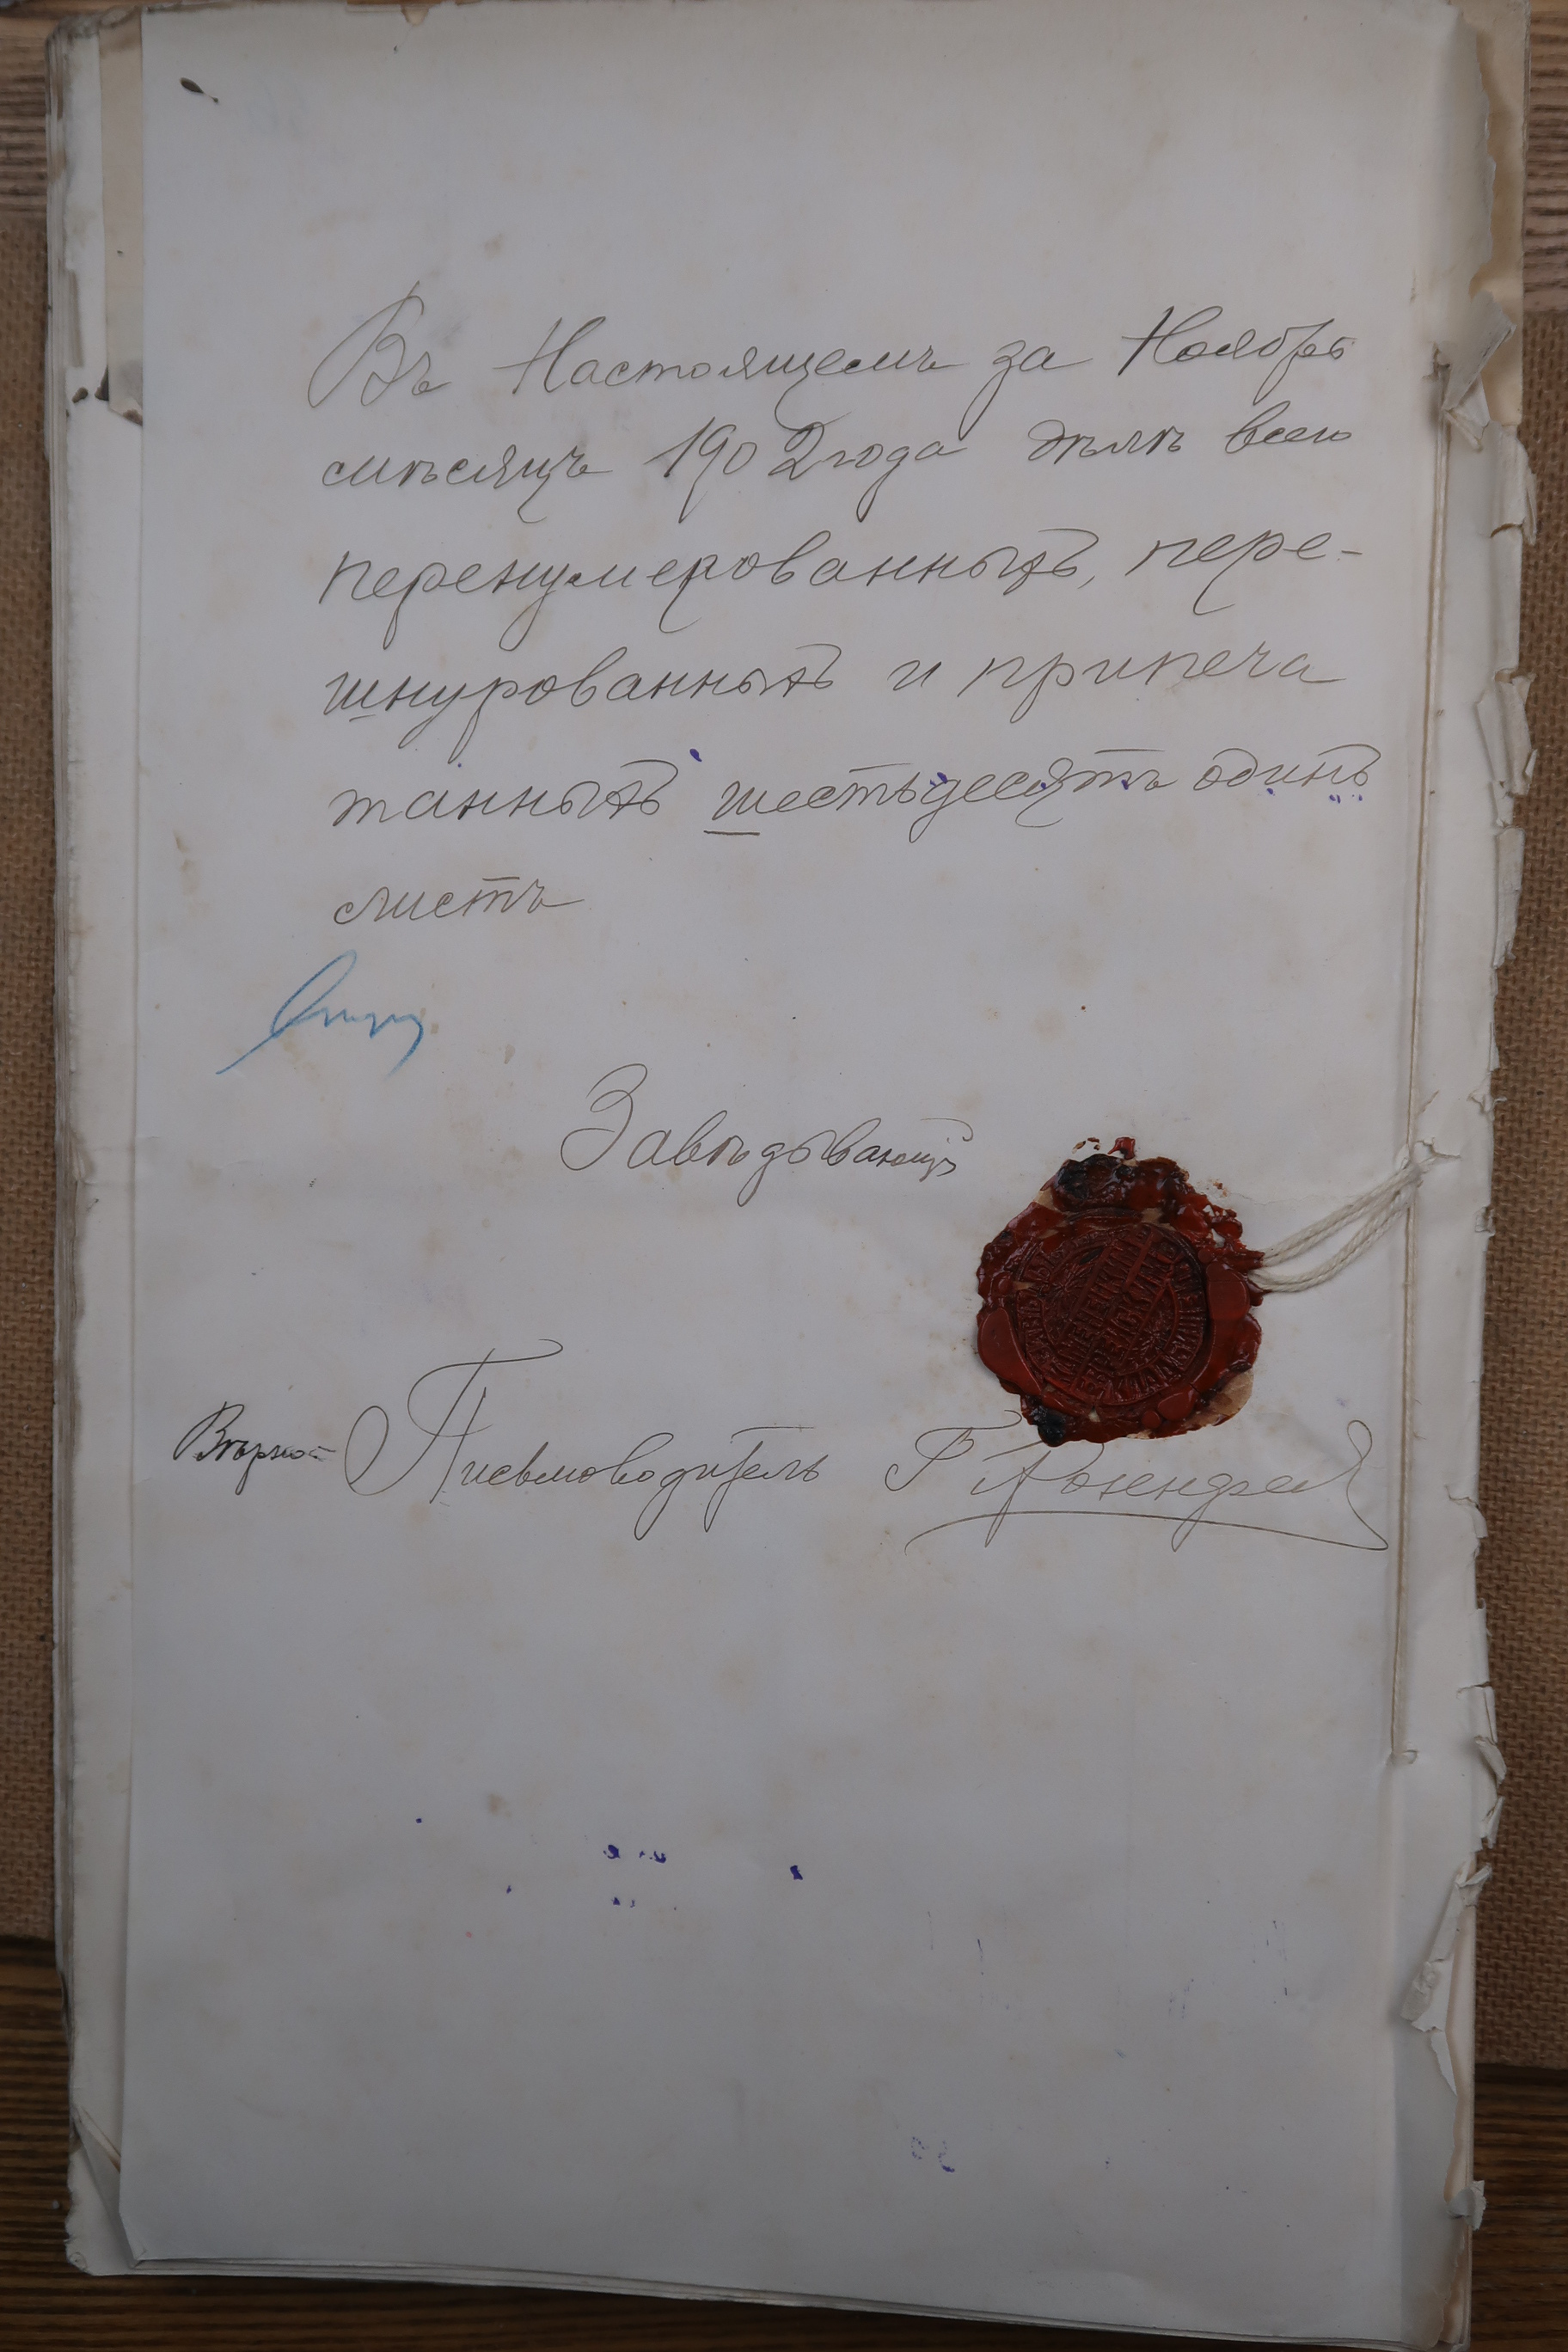 Въ Настоящемъ за Ноябрь
мѣсяцъ 1902 года дѣлѣ всего
перенумерованныхъ, пере-
шнурованныхъ и припеча
танныхъ шестьдесятъ одинъ
листъ
Завѣдывающій
Вѣрно: Письмоводитель Г Розенфел